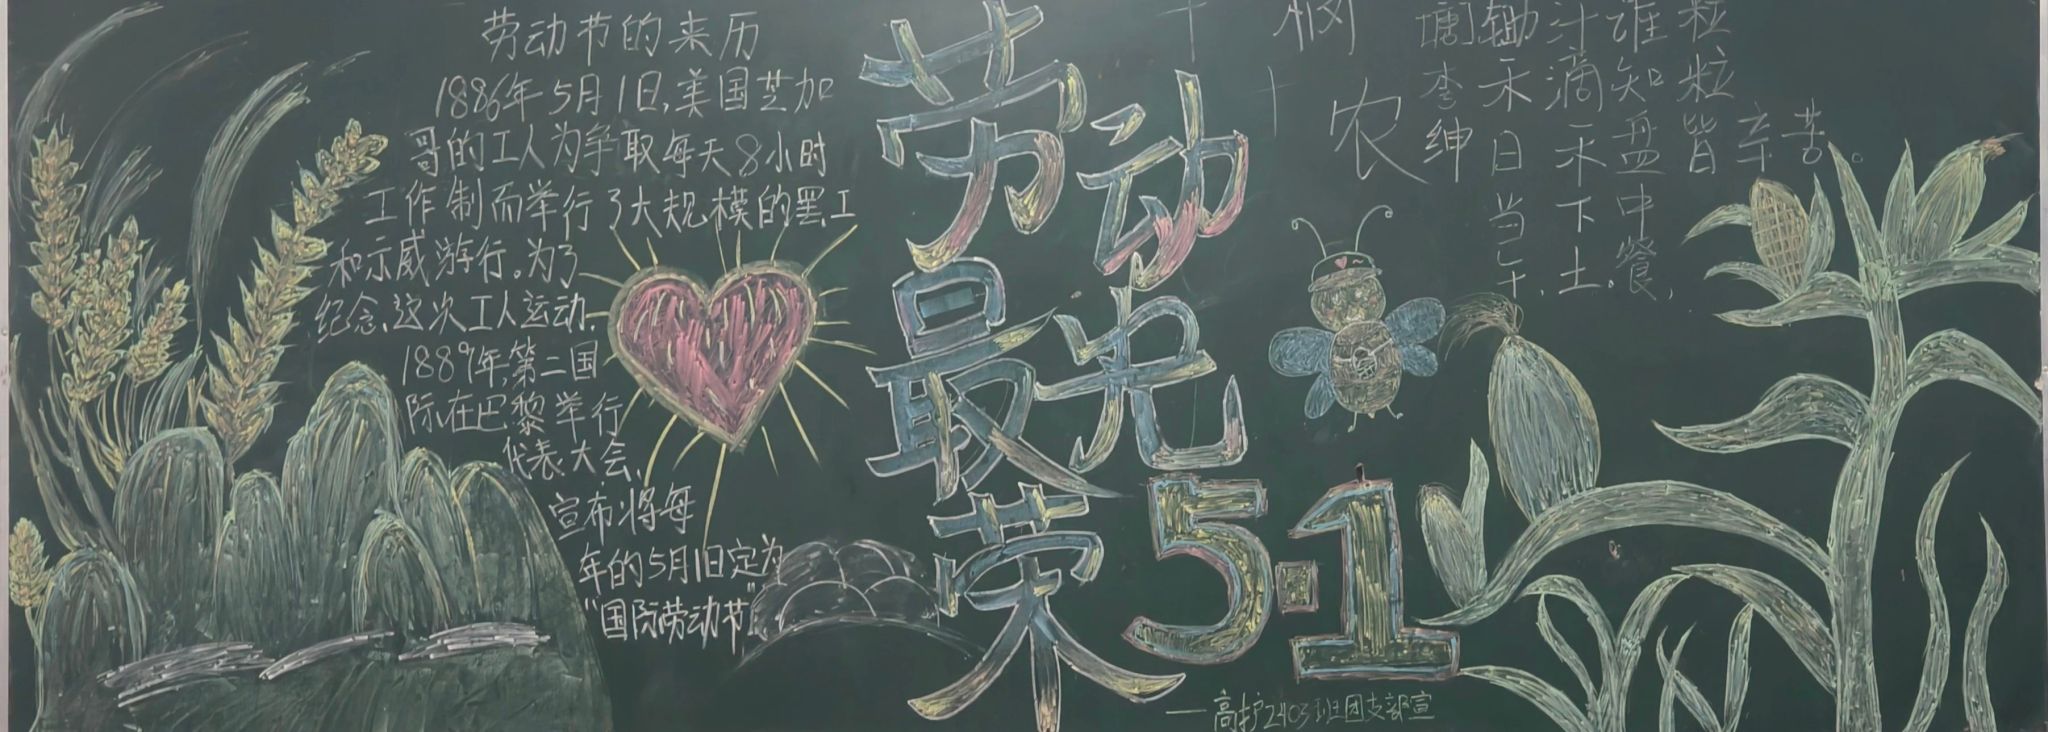 劳动节的来历
1886年5月1日,美国芝加
哥的工人为争取每天8小时
工作制而举行了大规模的罢工
和示威游行。为了
纪念这次工人运动,
1889年,第二国
际在巴黎举行
代表大会,
宣布将每
年的5月1日定为
“国际劳动节”。
劳动
最光
荣
5·1
——高护2403班团支部宣
悯农
[唐]李绅
锄禾日当午,
汗滴禾下土。
谁知盘中餐,
粒粒皆辛苦。